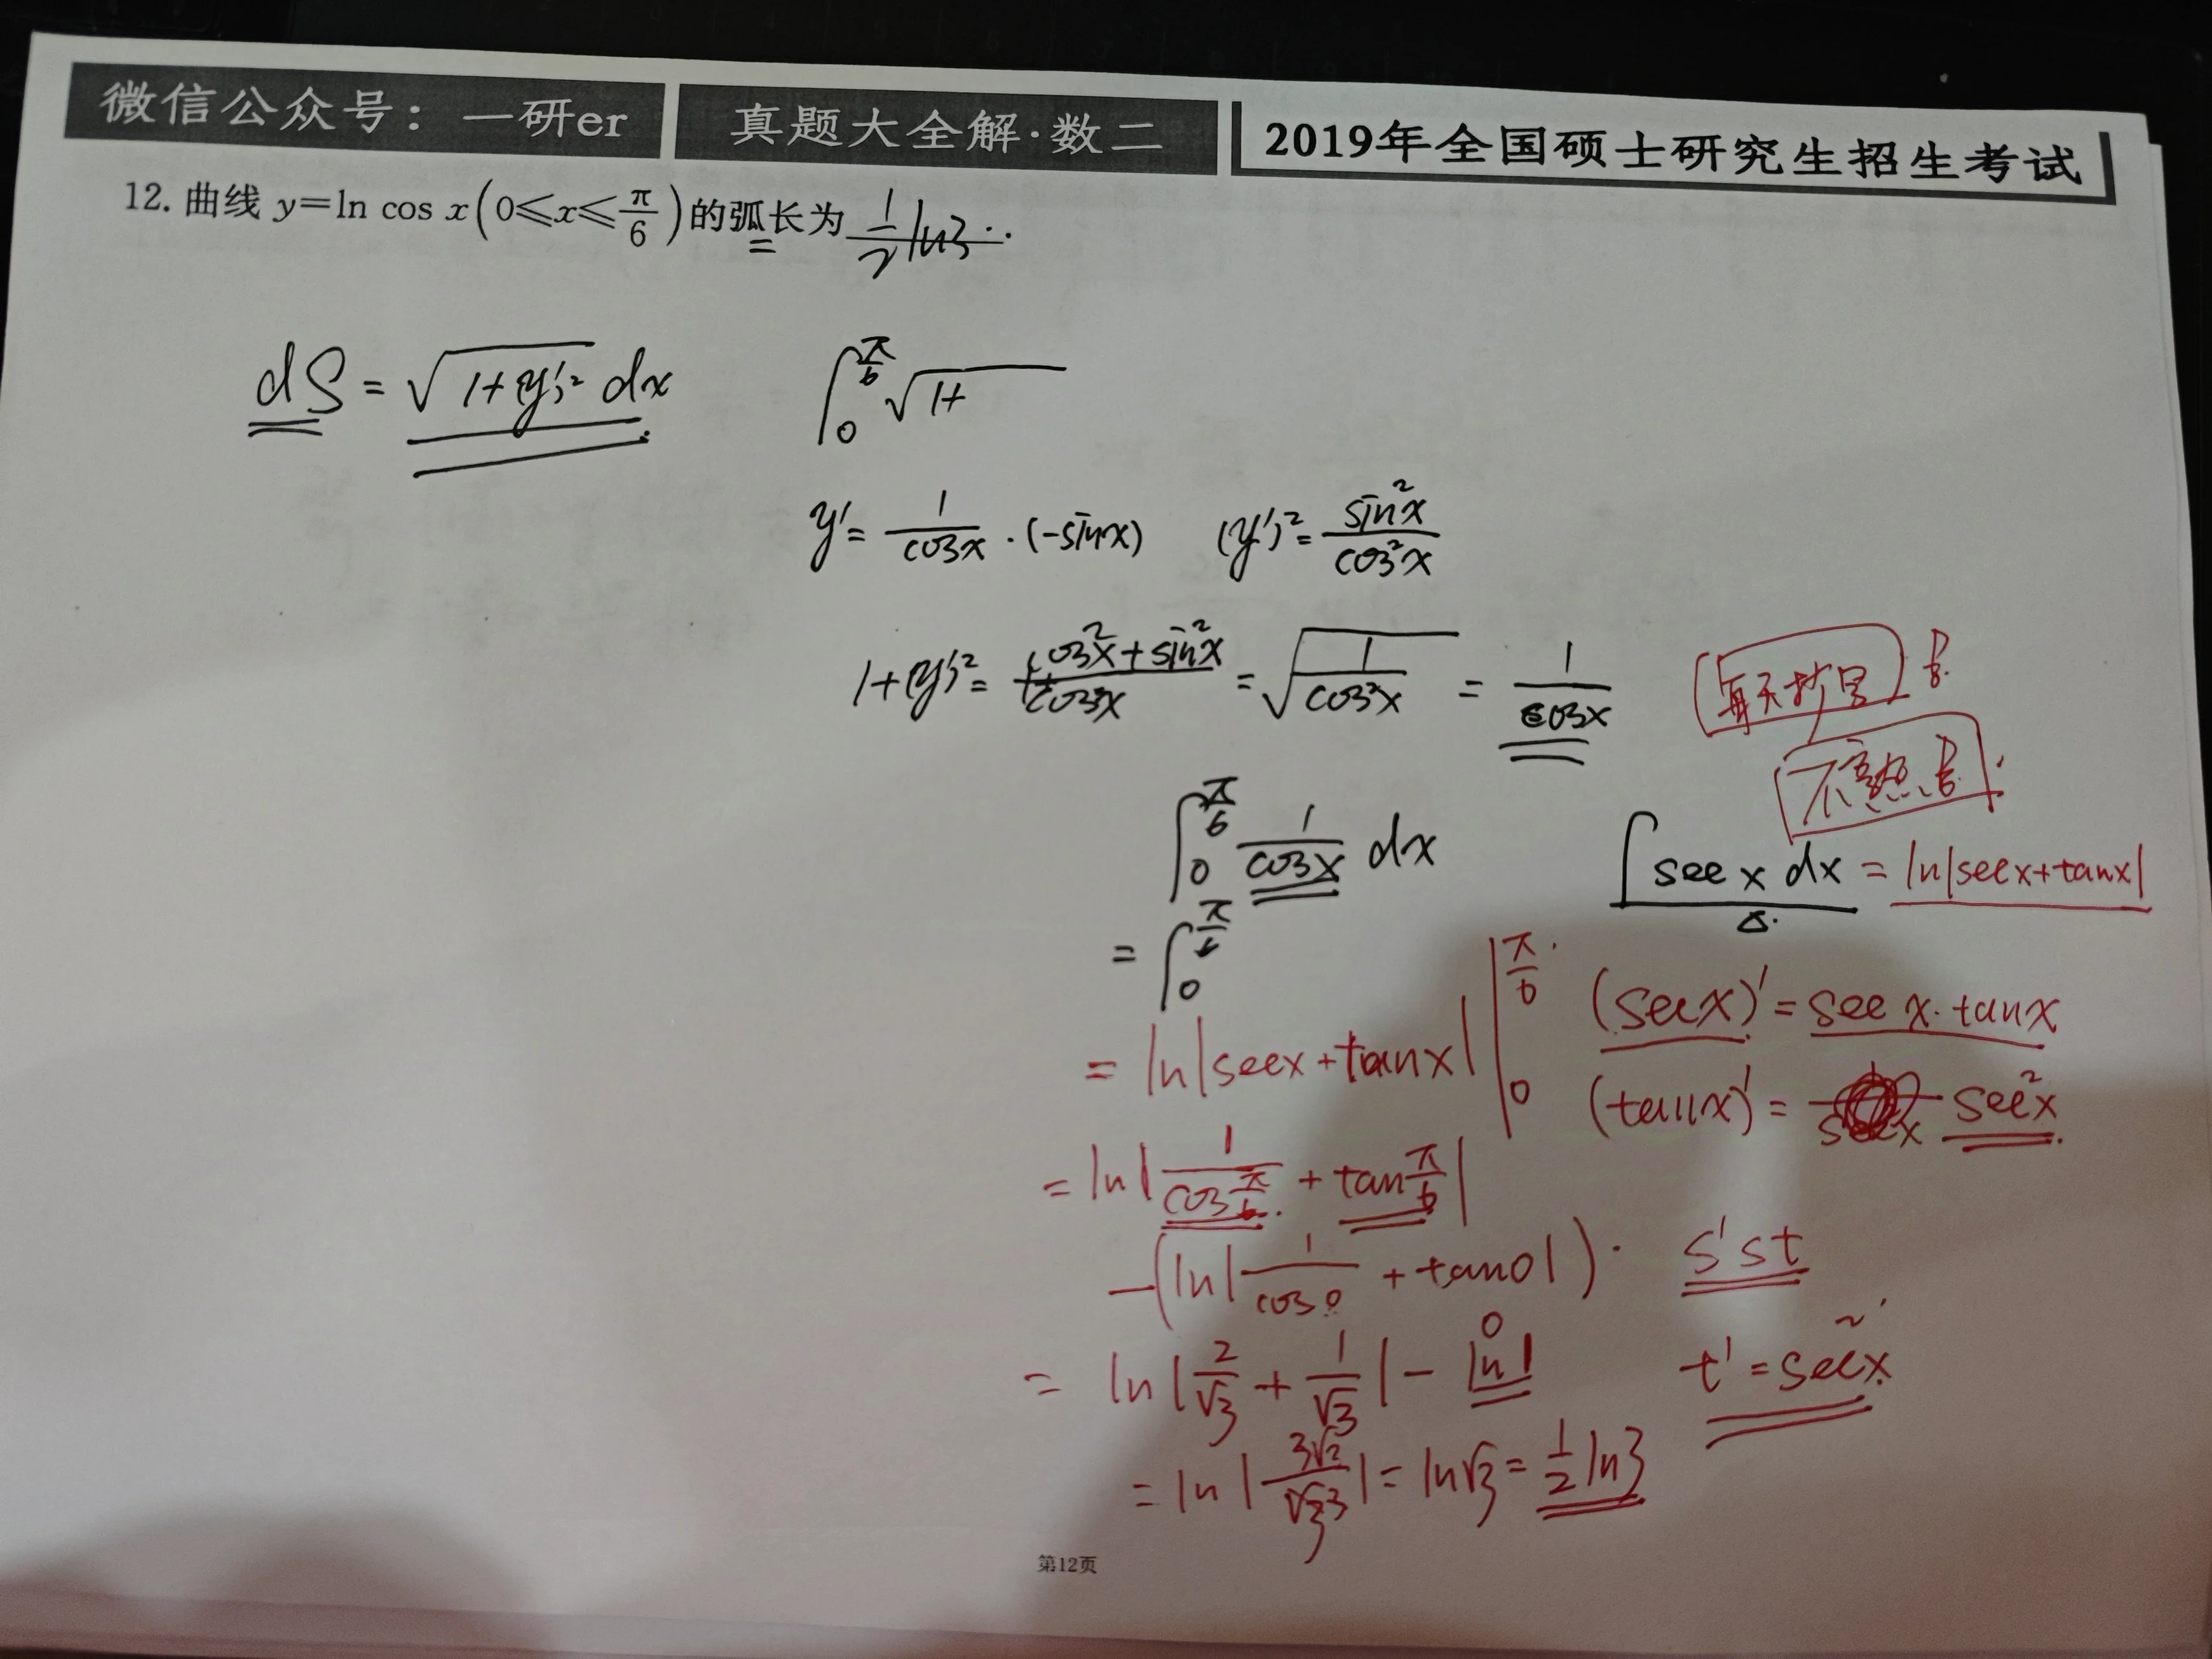 微信公众号：一研er 真题大全解·数二 2019年全国硕士研究生招生考试
12. 曲线 y=ln cos x(0≤x≤π/6)的弧长为 1/2 ln3 .
dS = √(1+(y')²) dx ∫₀^(π/6) √(1+
y' = 1/cosx · (-sinx) (y')² = sin²x/cos²x
1+(y')² = (cos²x+sin²x)/cos²x = √(1/cos²x) = 1/cosx
每天抄写
∫₀^(π/6) 1/cosx dx
∫ sec x dx = ln|secx+tanx|
= ∫₀^(π/6)
= ln|secx+tanx| |₀^(π/6)
(secx)' = sec x·tanx
(tanx)' = sec²x
= ln|1/cos(π/6) + tan(π/6)|
-(ln|1/cos0 + tan0|).
s'st
= ln|2/√3 + 1/√3| - ln1 0
t' = sec²x
= ln|3/√3| = ln√3 = 1/2 ln3
第12页